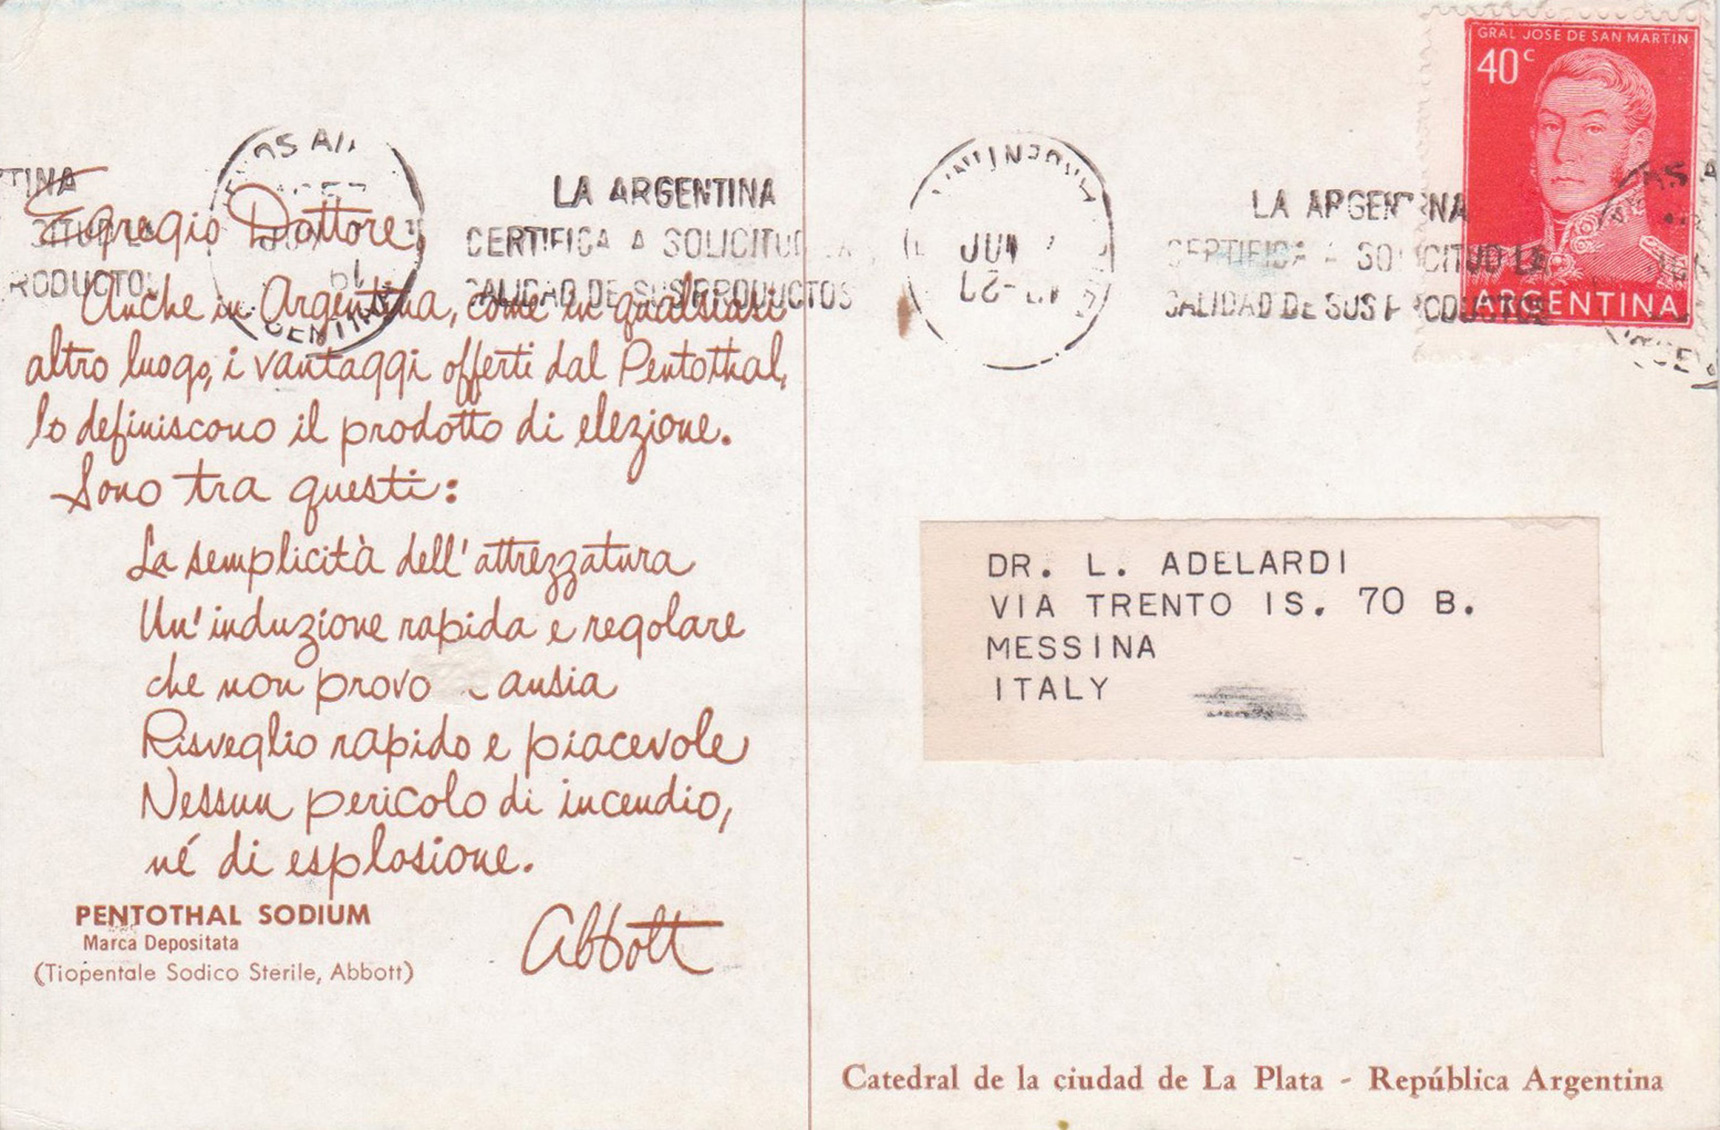 Egregio Dottore,
Anche in Argentina, come in qualsiasi
altro luogo, i vantaggi offerti dal Pentothal,
lo definiscono il prodotto di elezione.
Sono tra questi:
La semplicità dell'attrezzatura
Un'induzione rapida e regolare
che non provo ansia
Risveglio rapido e piacevole
Nessun pericolo di incendio,
né di esplosione.
Abbott
PENTOTHAL SODIUM
Marca Depositata
(Tiopentale Sodico Sterile, Abbott)
LA ARGENTINA
CERTIFICA A SOLICITUD LA
CALIDAD DE SUS PRODUCTOS
JUN
LA ARGENTINA
CERTIFICA A SOLICITUD LA
CALIDAD DE SUS PRODUCTOS
GRAL JOSE DE SAN MARTIN
40c
ARGENTINA
DR. L. ADELARDI
VIA TRENTO IS. 70 B.
MESSINA
ITALY
Catedral de la ciudad de La Plata - República Argentina